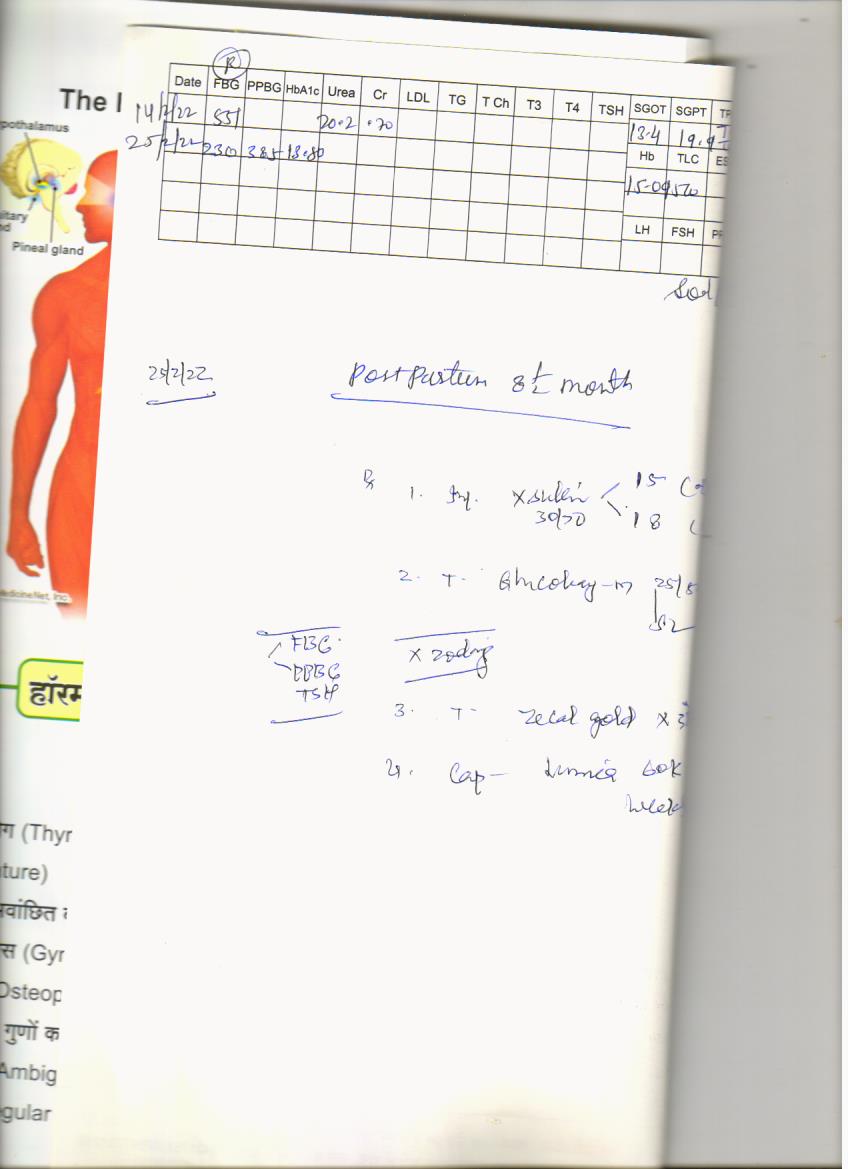 The
pothalamus
itary
nd
Pineal gland
MedicineNet, Inc.
हॉरम
ग (Thyr
ture)
स (Gyr
Osteop
गुणों क
Ambig
gular
R
Date FBG PPBG HbA1c Urea Cr LDL TG T Ch T3 T4 TSH SGOT SGPT
14/2/22 551 20.2 .70 13.4 19.9
25/2/22 230 385 13.80 Hb TLC ES
15.0
LH FSH
25/2/22 Postpartum 8½ month
Rx 1. Inj. Xsulin 15
30/70 18
2. T. Glucokay-m 25/5
FBG x 20day
PPBG
TSH
3. T. Zecal gold x
4. Cap- 60K
week